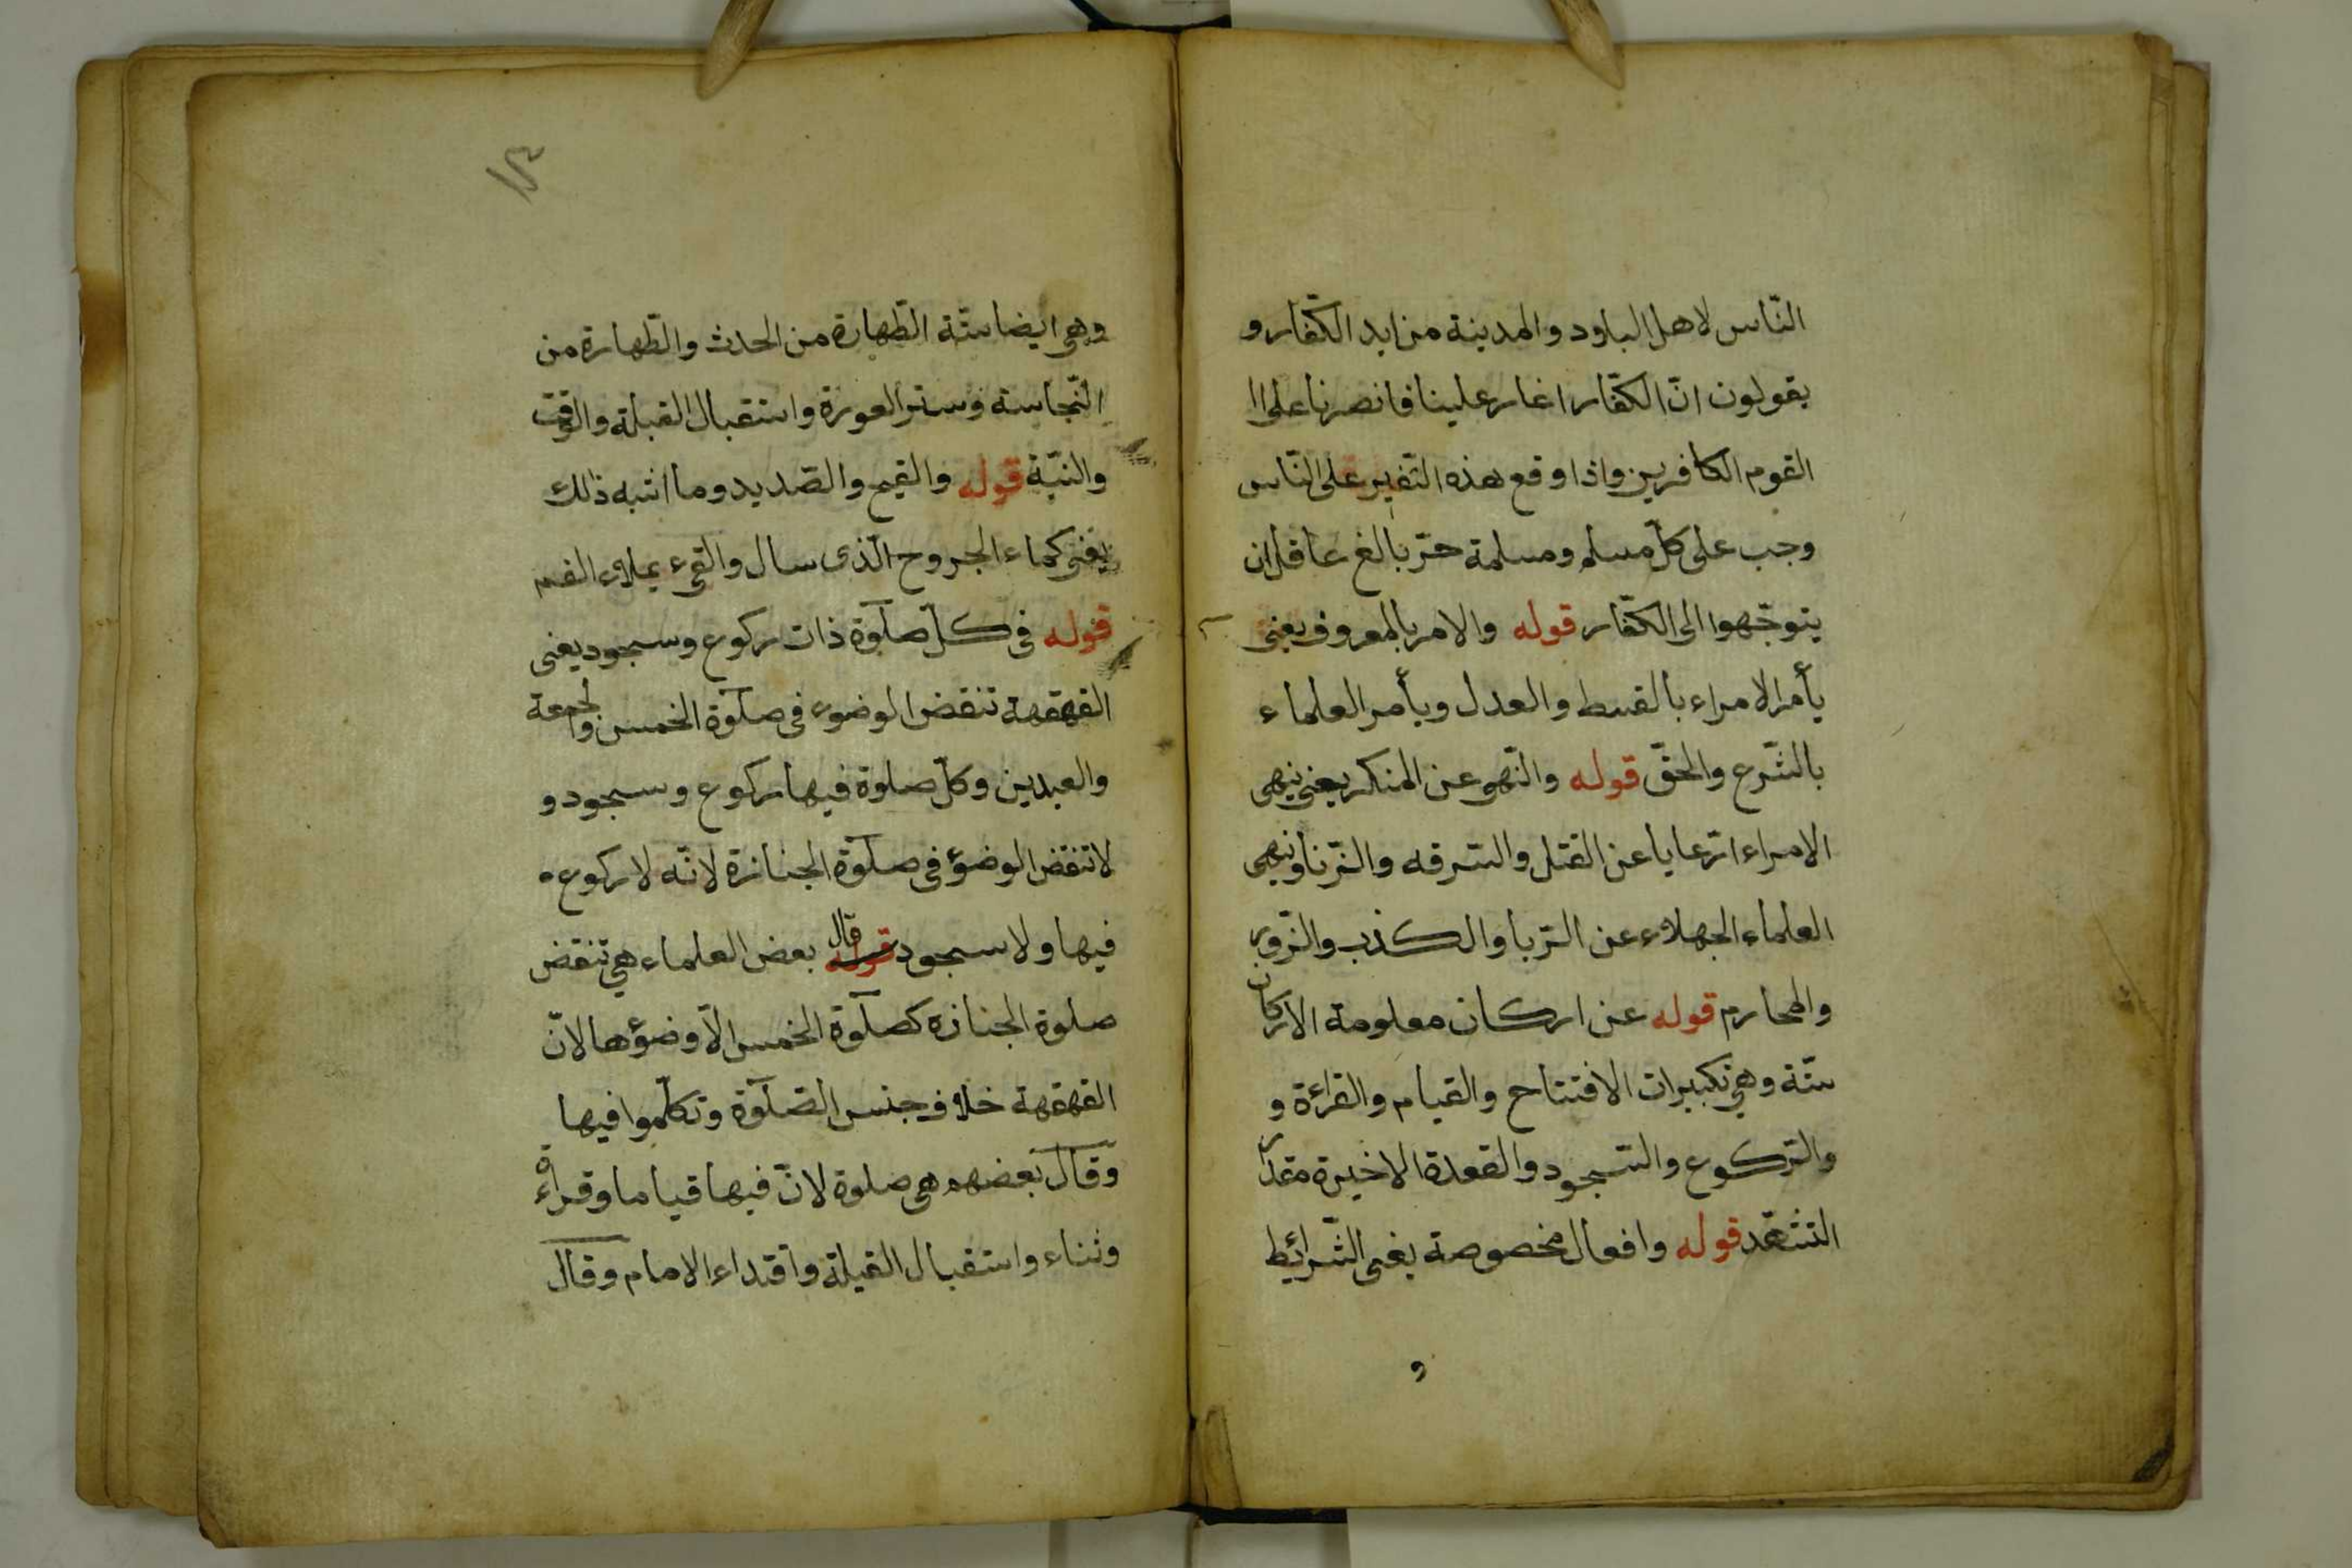 النّاس لاهل البلود والمدينة من ايد الكفّار و
يقولون انّ الكفّار اغار علينا فانصرنا على ا
القوم الكافرين واذا وقع هذه النّفير على النّاس
وجب على كلّ مسلم ومسلمة حرّ بالغ عاقل ان
يتوجّهوا الى الكفّار قوله والامر بالمعروف يعنى
يأمر الامراء بالقسط والعدل ويأمر العلماء
بالشّرع والحقّ قوله والنّهى عن المنكر يعنى ينهى
الامراء الرّعايا عن القتل والسّرقه والزّنا وينهى
العلماء الجهلاء عن الرّبا والكذب والزّور
والمحارم قوله عن اركان معلومة الاركان
ستّة وهى تكبيرات الافتتاح والقيام والقراءة و
والرّكوع والسّجود والقعدة الاخيرة مقدار
التشهّد قوله وافعال مخصوصة يعنى الشّرائط
و
١٣
وهى ايضا ستّة الطّهارة من الحدث والطّهارة من
النّجاسة وستر العورة واستقبال القبلة والوقت
والنيّة قوله والقيح والصّديد وما اشبه ذلك
يعنى كماء الجروح الّذى سال والقىء بملاء الفم
قوله فى كلّ صلوة ذات ركوع وسجود يعنى
القهقهة تنقض الوضوء فى صلوة الخمس والجمعة
والعيدين وكلّ صلوة فيها ركوع وسجود و
لا تنقض الوضؤ فى صلوة الجنازة لانّه لا ركوع
فيها ولا سجود قوله قال بعض العلماء هى تنقض
صلوة الجنازه كصلوة الخمس الّا وضؤها لانّ
القهقهة خلاف جنس الصّلوة وتكلّموا فيها
وقال بعضهم هى صلوة لانّ فيها قياما وقراءة
وثناء واستقبال القبلة واقتداء الامام وقال